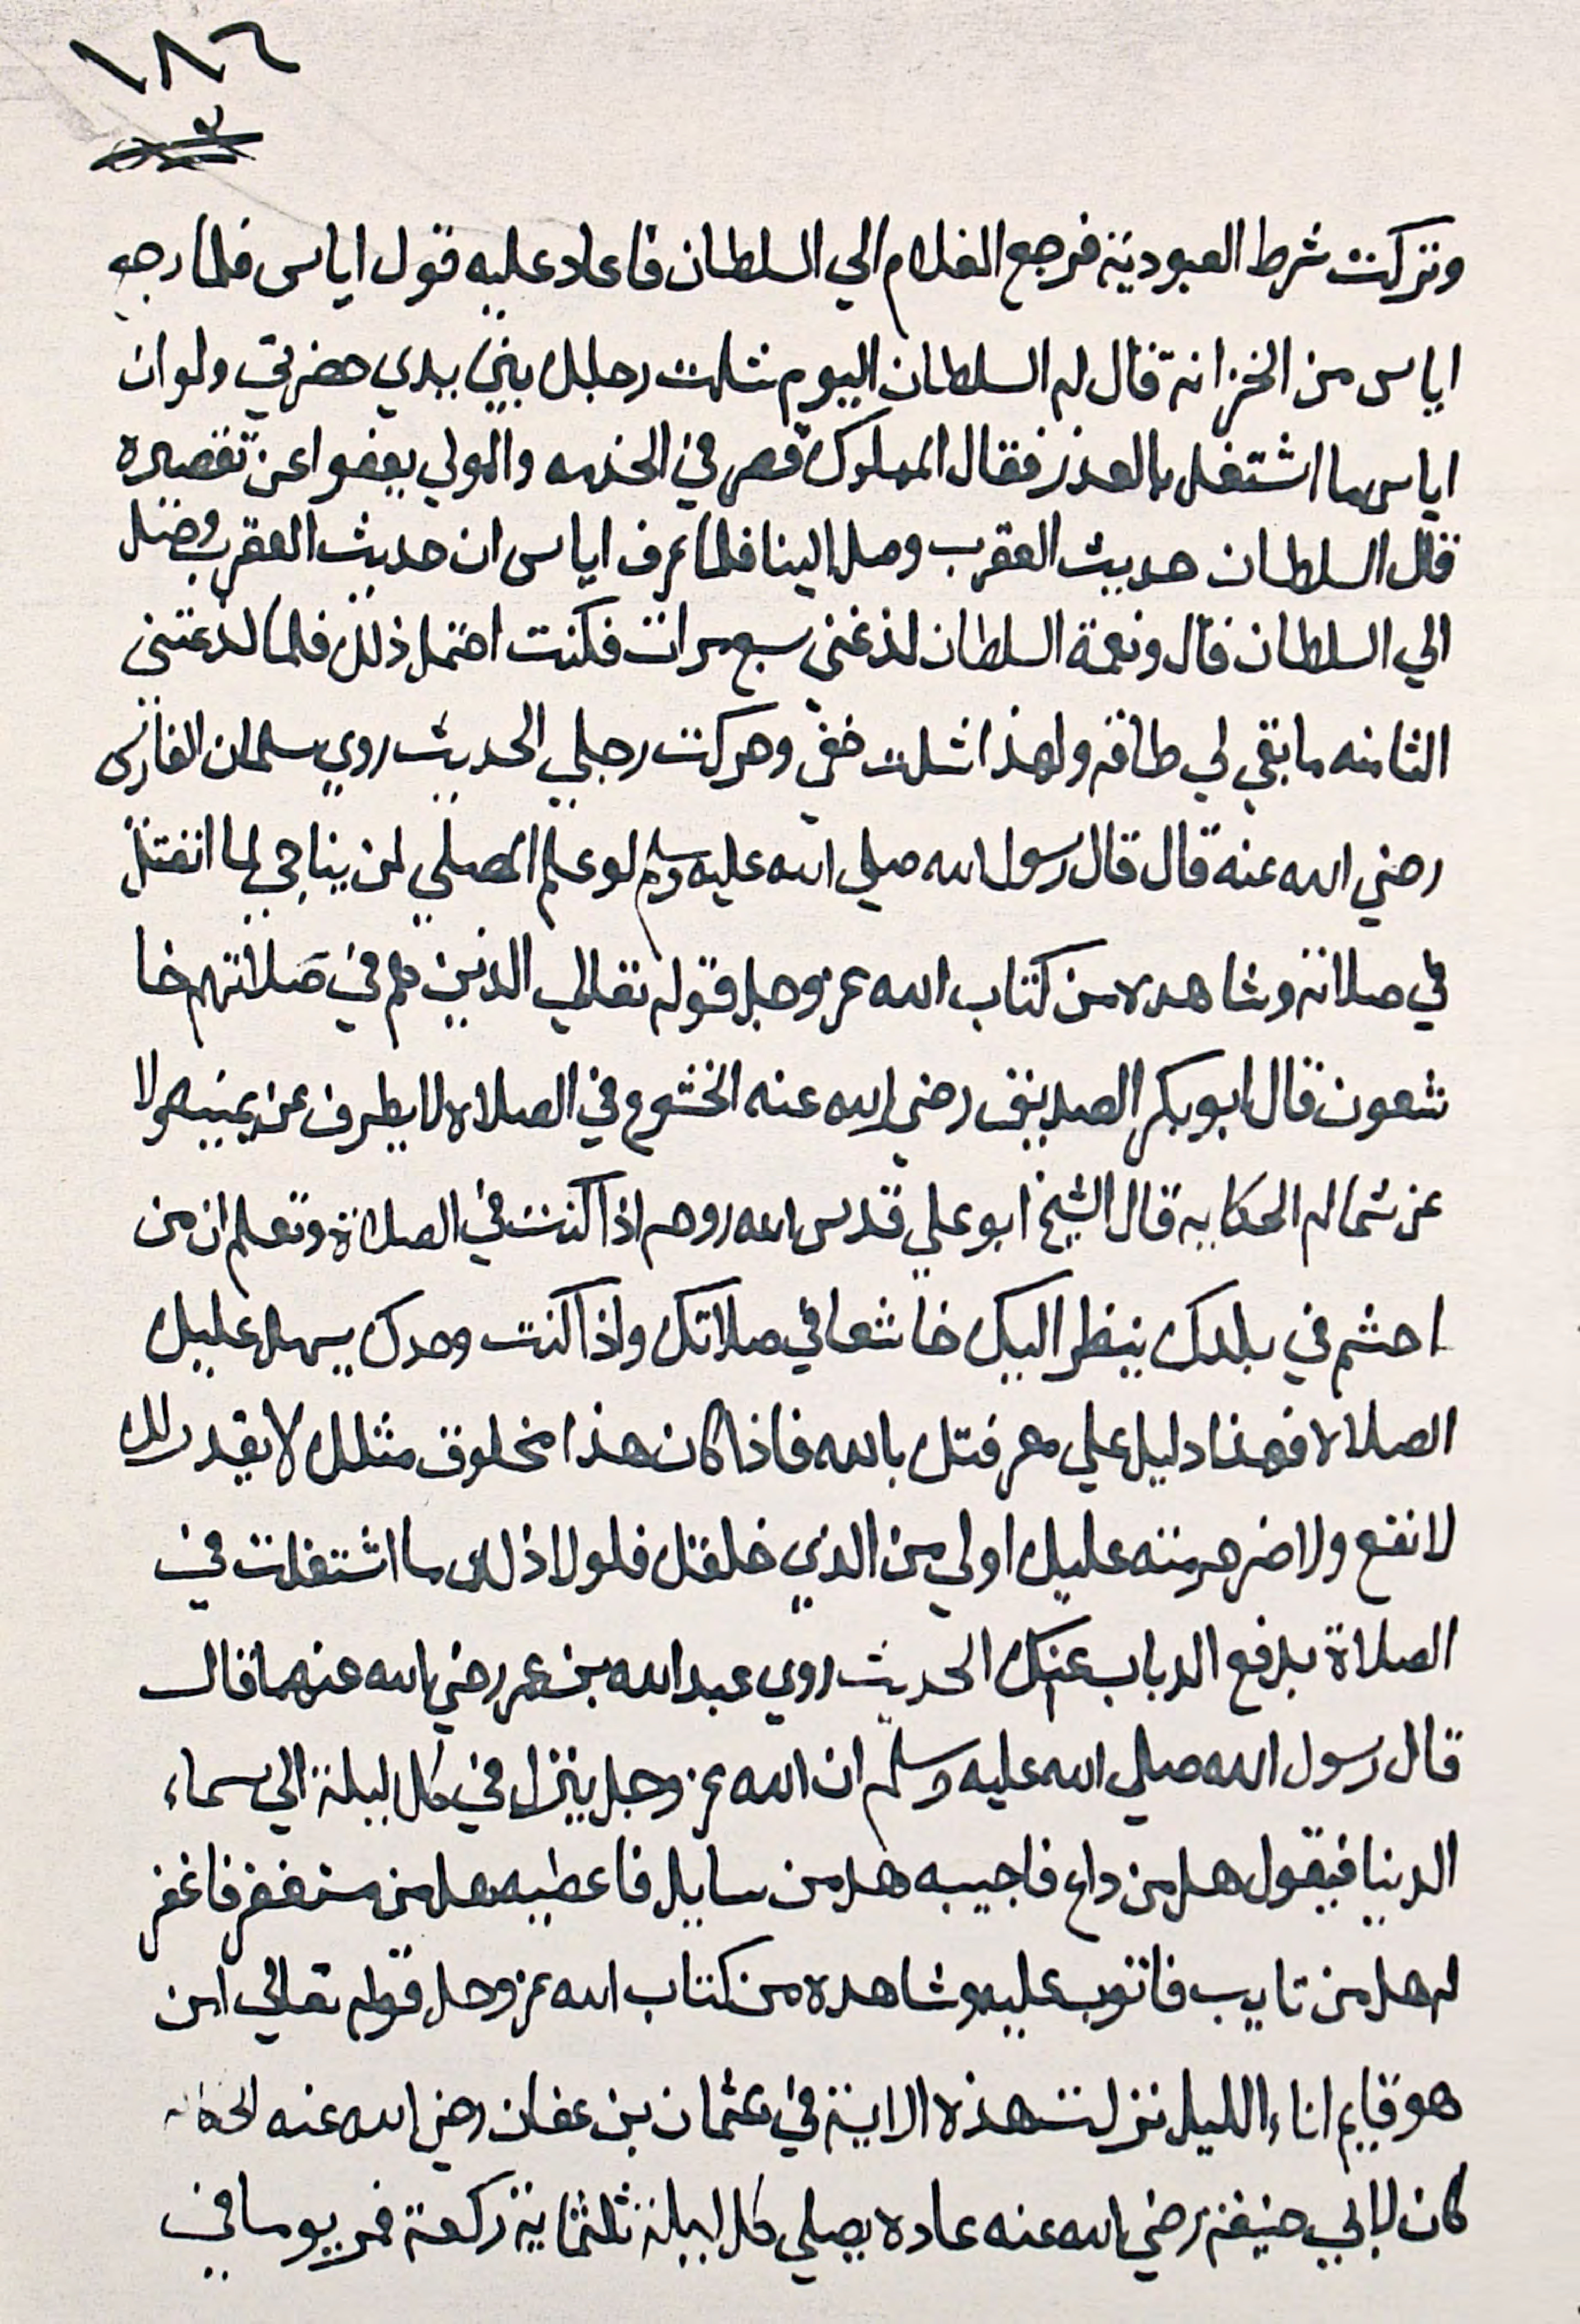 ١٨٦
وتركت شرط العبودية فرجع الغلام الي السلطان فاعاد عليه قول اياس فلما رجع
اياس من الخزانة قال له السلطان اليوم شلت رجلك بين يدي حضرتي ولو ان
اياس ما اشتغل بالعذر فقال المملوك قصر في الخدمه والمولي يعفوا عن تقصيره
قال السلطان حديث العقرب وصل الينا فلما عرف اياس ان حديث العقرب وصل
الي السلطان قال ونعمة السلطان لذغني سبع مرات فكنت احتمل ذلك فلما لذغتني
الثامنه ما بقي لي طاقه ولهذا شلت خفي وحركت رجلي الحديث روي سلمان الفارسي
رضي الله عنه قال قال رسول الله صلي الله عليه وسلم لو علم المصلي لمن يناجي لما انفتل
في صلاته وشاهده من كتاب الله عز وجل قوله تعالي الذين هم في صلاتهم خا
شعون قال ابو بكر الصديق رضي الله عنه الخشوع في الصلاه لا يطرف عن يمينه ولا
عن شماله الحكايه قال الشيخ ابو علي قدس الله روحه اذا كنت في الصلاة وتعلم ان من
احشم في بلدك ينظر اليك خاشعا في صلاتك واذا كنت وحدك يسهل عليك
الصلاه فهذا دليل علي معرفتك بالله فاذا كان هذا مخلوق مثلك لا يقدر لك
لا نفع ولا ضر حرمته عليك اولي من الذي خلقك فلولا ذلك ما اشتغلت في
الصلاة بدفع الدباب عنك الحديث روي عبد الله بن عمر رضي الله عنهما قال
قال رسول الله صلي الله عليه وسلم ان الله عز وجل ينزل في كل ليلة الي سماء
الدنيا فيقول هل من داع فاجيبه هل من سايل فاعطيه هل من مستغفر فاغفر
له هل من تايب فاتوب عليه وشاهده من كتاب الله عز وجل قوله تعالي امن
هو قايم اناء الليل نزلت هذه الاية في عثمان بن عفان رضي الله عنه الحكايه
كان لابي حنيفة رضي الله عنه عاده يصلي كل ليلة ثلثماية ركعة فمر يوما في